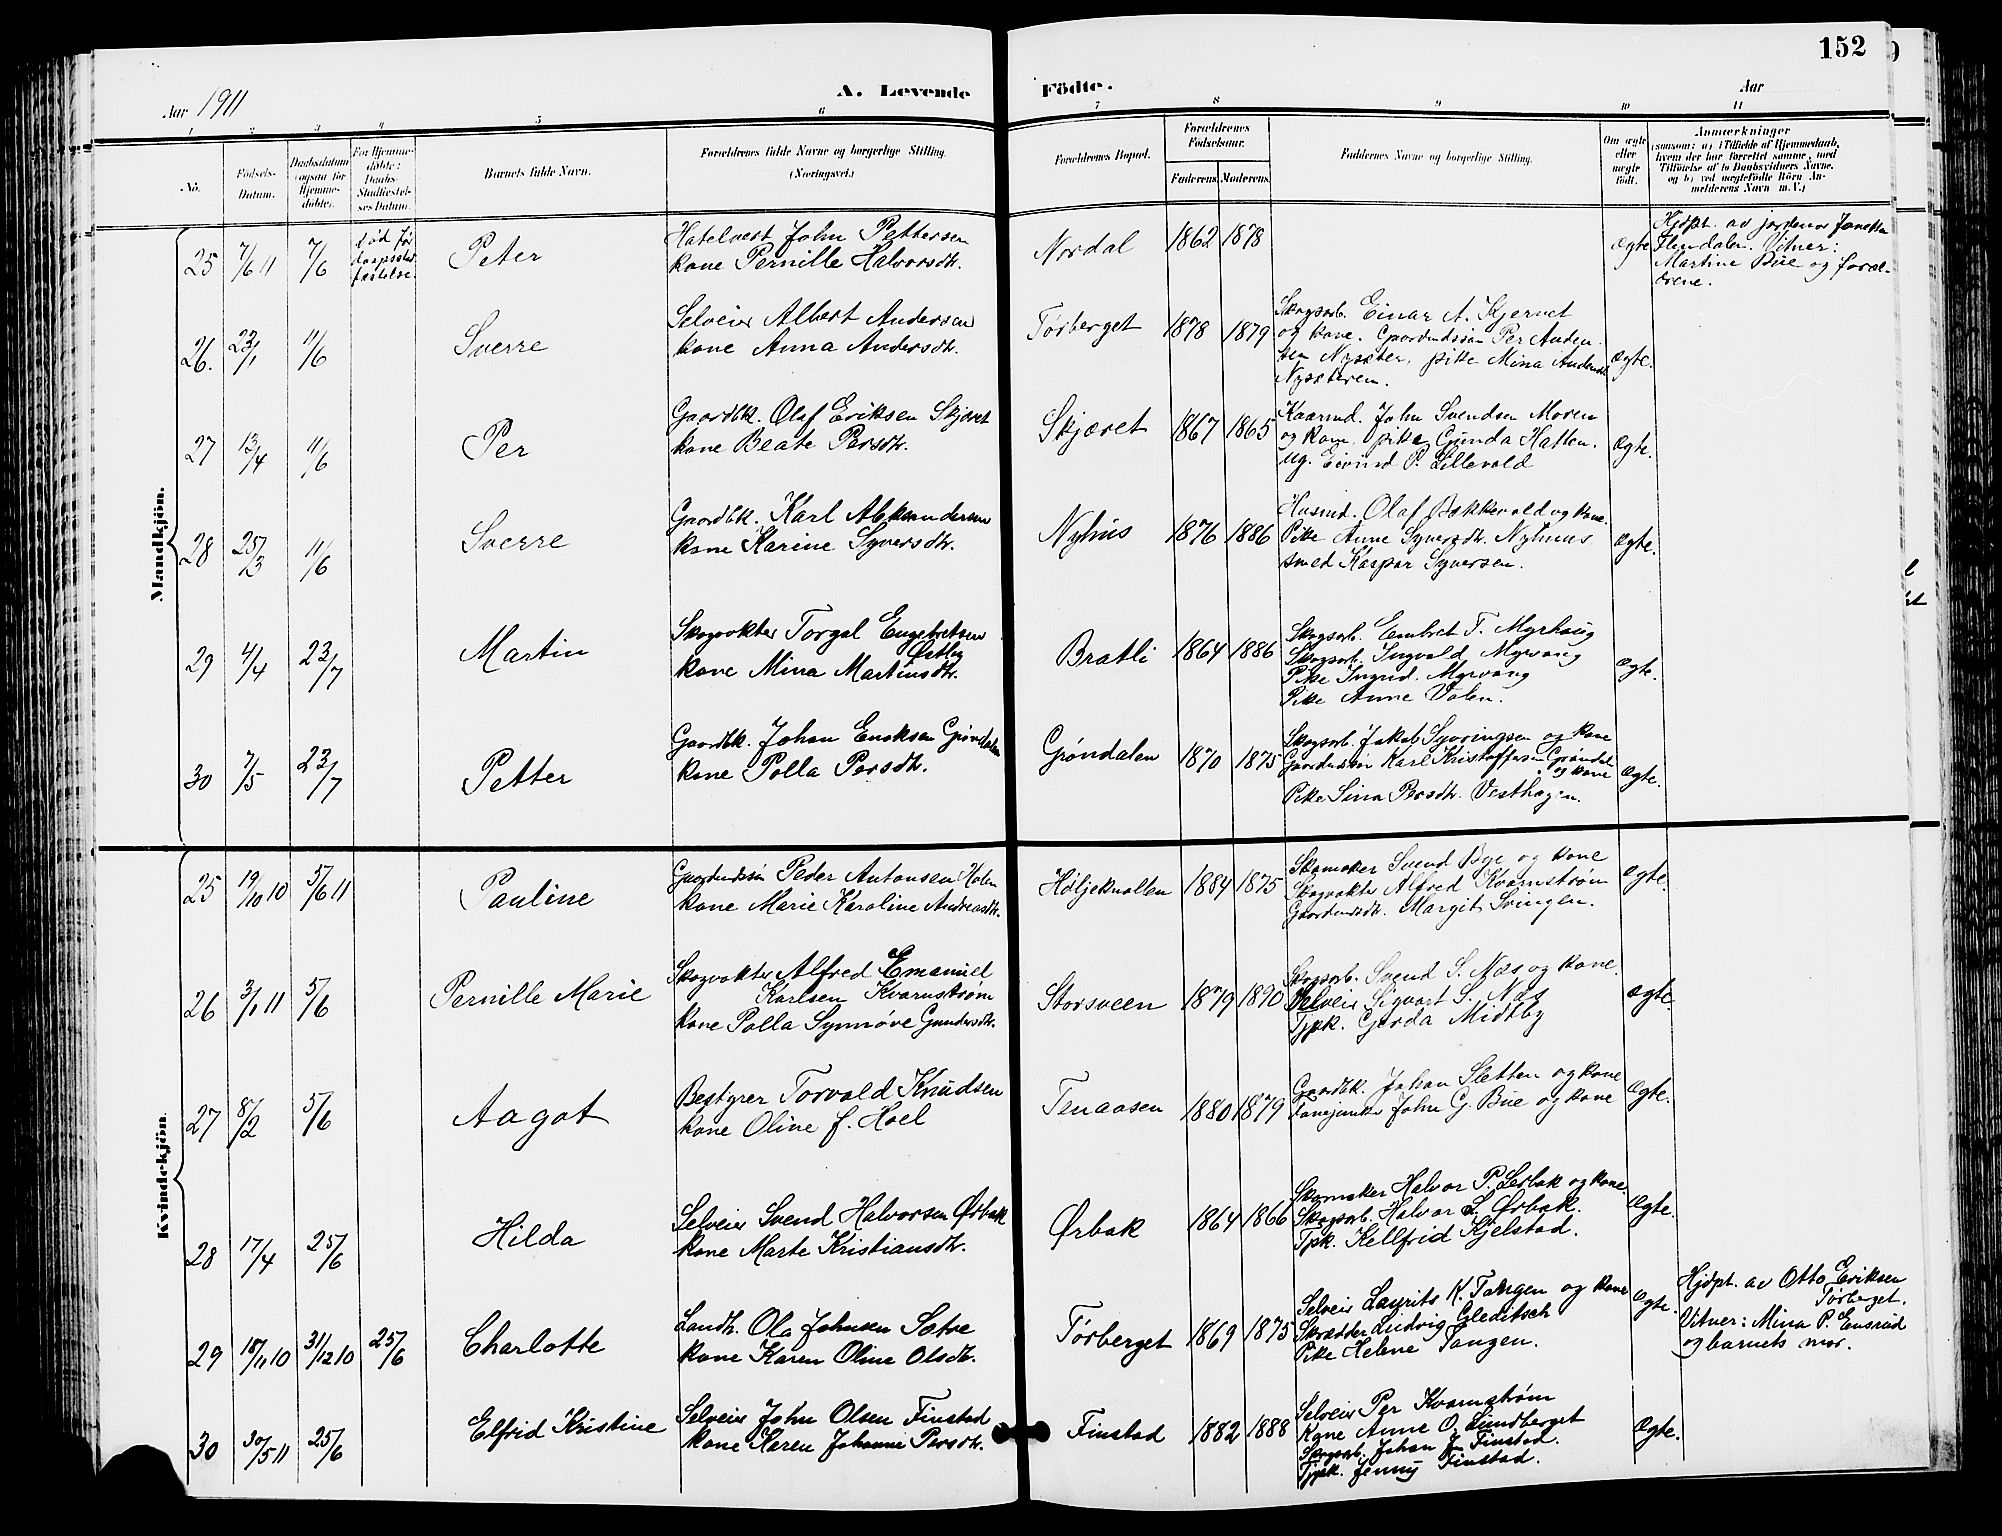 152
Aar 1911
A. Levende Födte.
Aar
1 2 3 4 5 6 7 8 9 10 11
No.
Födsels-Datum.
Daabsdatum (ogsaa for Hjemme-döbte).
For Hjemme-döbte: Daabs-Stadfæstel-ses Datum.
Barnets fulde Navn.
Forældrenes fulde Navne og borgerlige Stilling.
(Næringsvei.)
Forældrenes Bopæl.
Forældrenes Födselsaar.
Faderens. Moderens.
Faddernes Navne og borgerlige Stilling.
Om ægte eller uægte født.
Anmærkninger
(saasom: a) i Tilfælde af Hjemmedaab, hvem der har forrettet samme, med Tilföielse af to Daabsvidners Navne, og b) ved uægtefödte Börn An-melderens Navn m. V.)
Mandkjön.
25 7/6 11 7/6 død før daapsstad-fæstelse. Peter
John Pettersen
kone Pernille Halvorsdtr.
Nordal 1862 1878
ægte
Hjdpt. av jordmor
Vitner:
Martine Bue og foræl-
drene.
26. 23/1 11/6 Sverre
Selveier Albert Andersen
kone Anna Andersdtr.
Tørberget 1878 1879
Skogsarb. Einar A. Kjernet
og kone. Gaardmdssøn Per Anden
sen Nysæter, pike Mina Andersdtr.
Nysæteren.
ægte.
27 13/4 11/6 Per
Gaardbk. Olaf Eriksen Skjæret
kone Beate Persdtr.
Skjæret 1867 1865
Kaarmd. John Svendsen Moren
og kone, pike Gunda Hatten.
Ug. Eivind P. Lillevold
ægte.
28 25/3 11/6 Sverre
Gaardbk. Karl Aleksandersen
kone Karine Syversdtr.
Nyhus 1876 1886
Husmd. Olaf Bækkevold og kone.
Pike Anne Syversdtr. Nyhuus
smed Kaspar Syversen.
ægte.
29 4/4 23/7 Martin
Skogvokter Torgal Engebretsen
Østby
kone Mina Martinsdtr.
Bratli 1864 1886
Skogsarb. Embret T. Myrhaug
Skogsarb. Ingvald Myrvang
Pike Ingrid Myrvang
Pike Anne Volen.
ægte.
30 7/5 23/7 Petter
Gaardbk. Johan Eriksen Grøndalen
kone Polla Persdtr.
Grøndalen 1870 1875
Skogsarb. Jakob Syvringsen og kone
Gaardmdssøn Karl Kristoffersen Grøndal
og kone
Pike Sina Persdtr. Vesthagen.
ægte.
Kvindekjön.
25 19/10 10 5/6 11 Pauline
Gaardmdssøn Peder Antonsen Holen
kone Marie Karoline Andreasdtr.
Høljeknallen 1884 1875
Skomaker Svend Bye og kone
Skogvokter Alfred Kvarnstrøm
Gaardmdsdtr. Margit Svingen.
ægte.
26 3/1 11 5/6 Pernille Marie
Skogvokter Alfred Emanuel
Karlsen Kvarnstrøm
kone Polla Synnøve Gundersdtr.
Storsveen 1879 1890
Skogsarb. Svend S. Næs og kone.
Selveier Sigvart S. Næs
Tjpk. Gerda Midtby
ægte.
27 8/2 5/6 Aagot
Bestyrer Torvald Knudsen
kone Oline f. Hoel
Tenaasen 1880 1879
Gaardbk. Johan Sletten og kone
Fanejunker John G. Bue og kone
ægte.
28 17/4 25/6 Hilda
Selveier Svend Halvorsen Ørbak
kone Marte Kristiansdtr.
Ørbak 1864 1866
Skomaker Halvor P. Lerbak og kone.
Skogsarb. Halvor S. Ørbak.
Tjpk. Kellfrid Kjelstad.
ægte.
29 18/11 10 31/12 10 25/6 Charlotte
Landh. Ola Johnsen Sætre
kone Karen Oline Olsdtr.
Tørberget 1869 1875
Selveier Laurits K. Tangen og kone
Skrædder Ludvig Gleditsch
Pike Helene Tangen.
ægte.
Hjdpt. av Otto Eriksen
Tørberget.
Vitner: Mina P. Ensrud
og barnets mor.
30 30/5 11 25/6 Elfrid Kristine
Selveier John Olsen Finstad
kone Karen Johanne Persdtr.
Finstad 1882 1888
Selveier Per Kvarnstrøm
Kone Anne O. Lundberget
Skogsarb. Johan J. Finstad.
Tjpk. Jenny Finstad.
ægte.